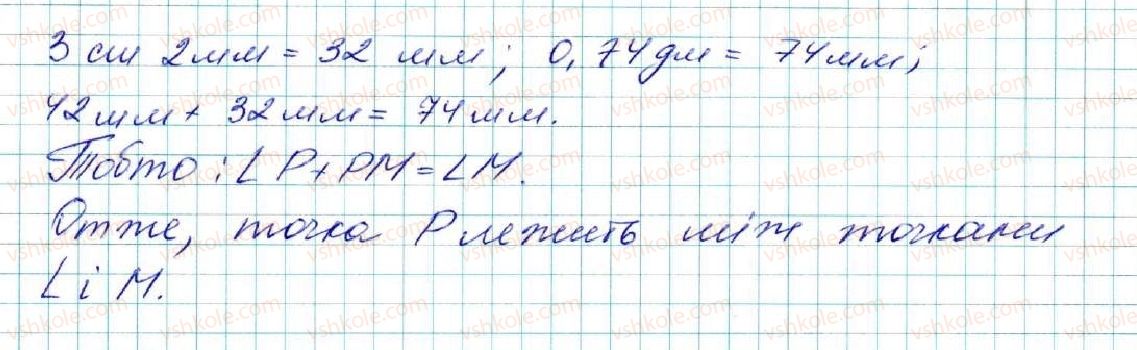 3 см 2мм = 32 мм; 0,74дм = 74мм;
42мм + 32мм = 74мм.
Тобто: LP + PM = LM.
Отже, точка P лежить між точками
L і M.